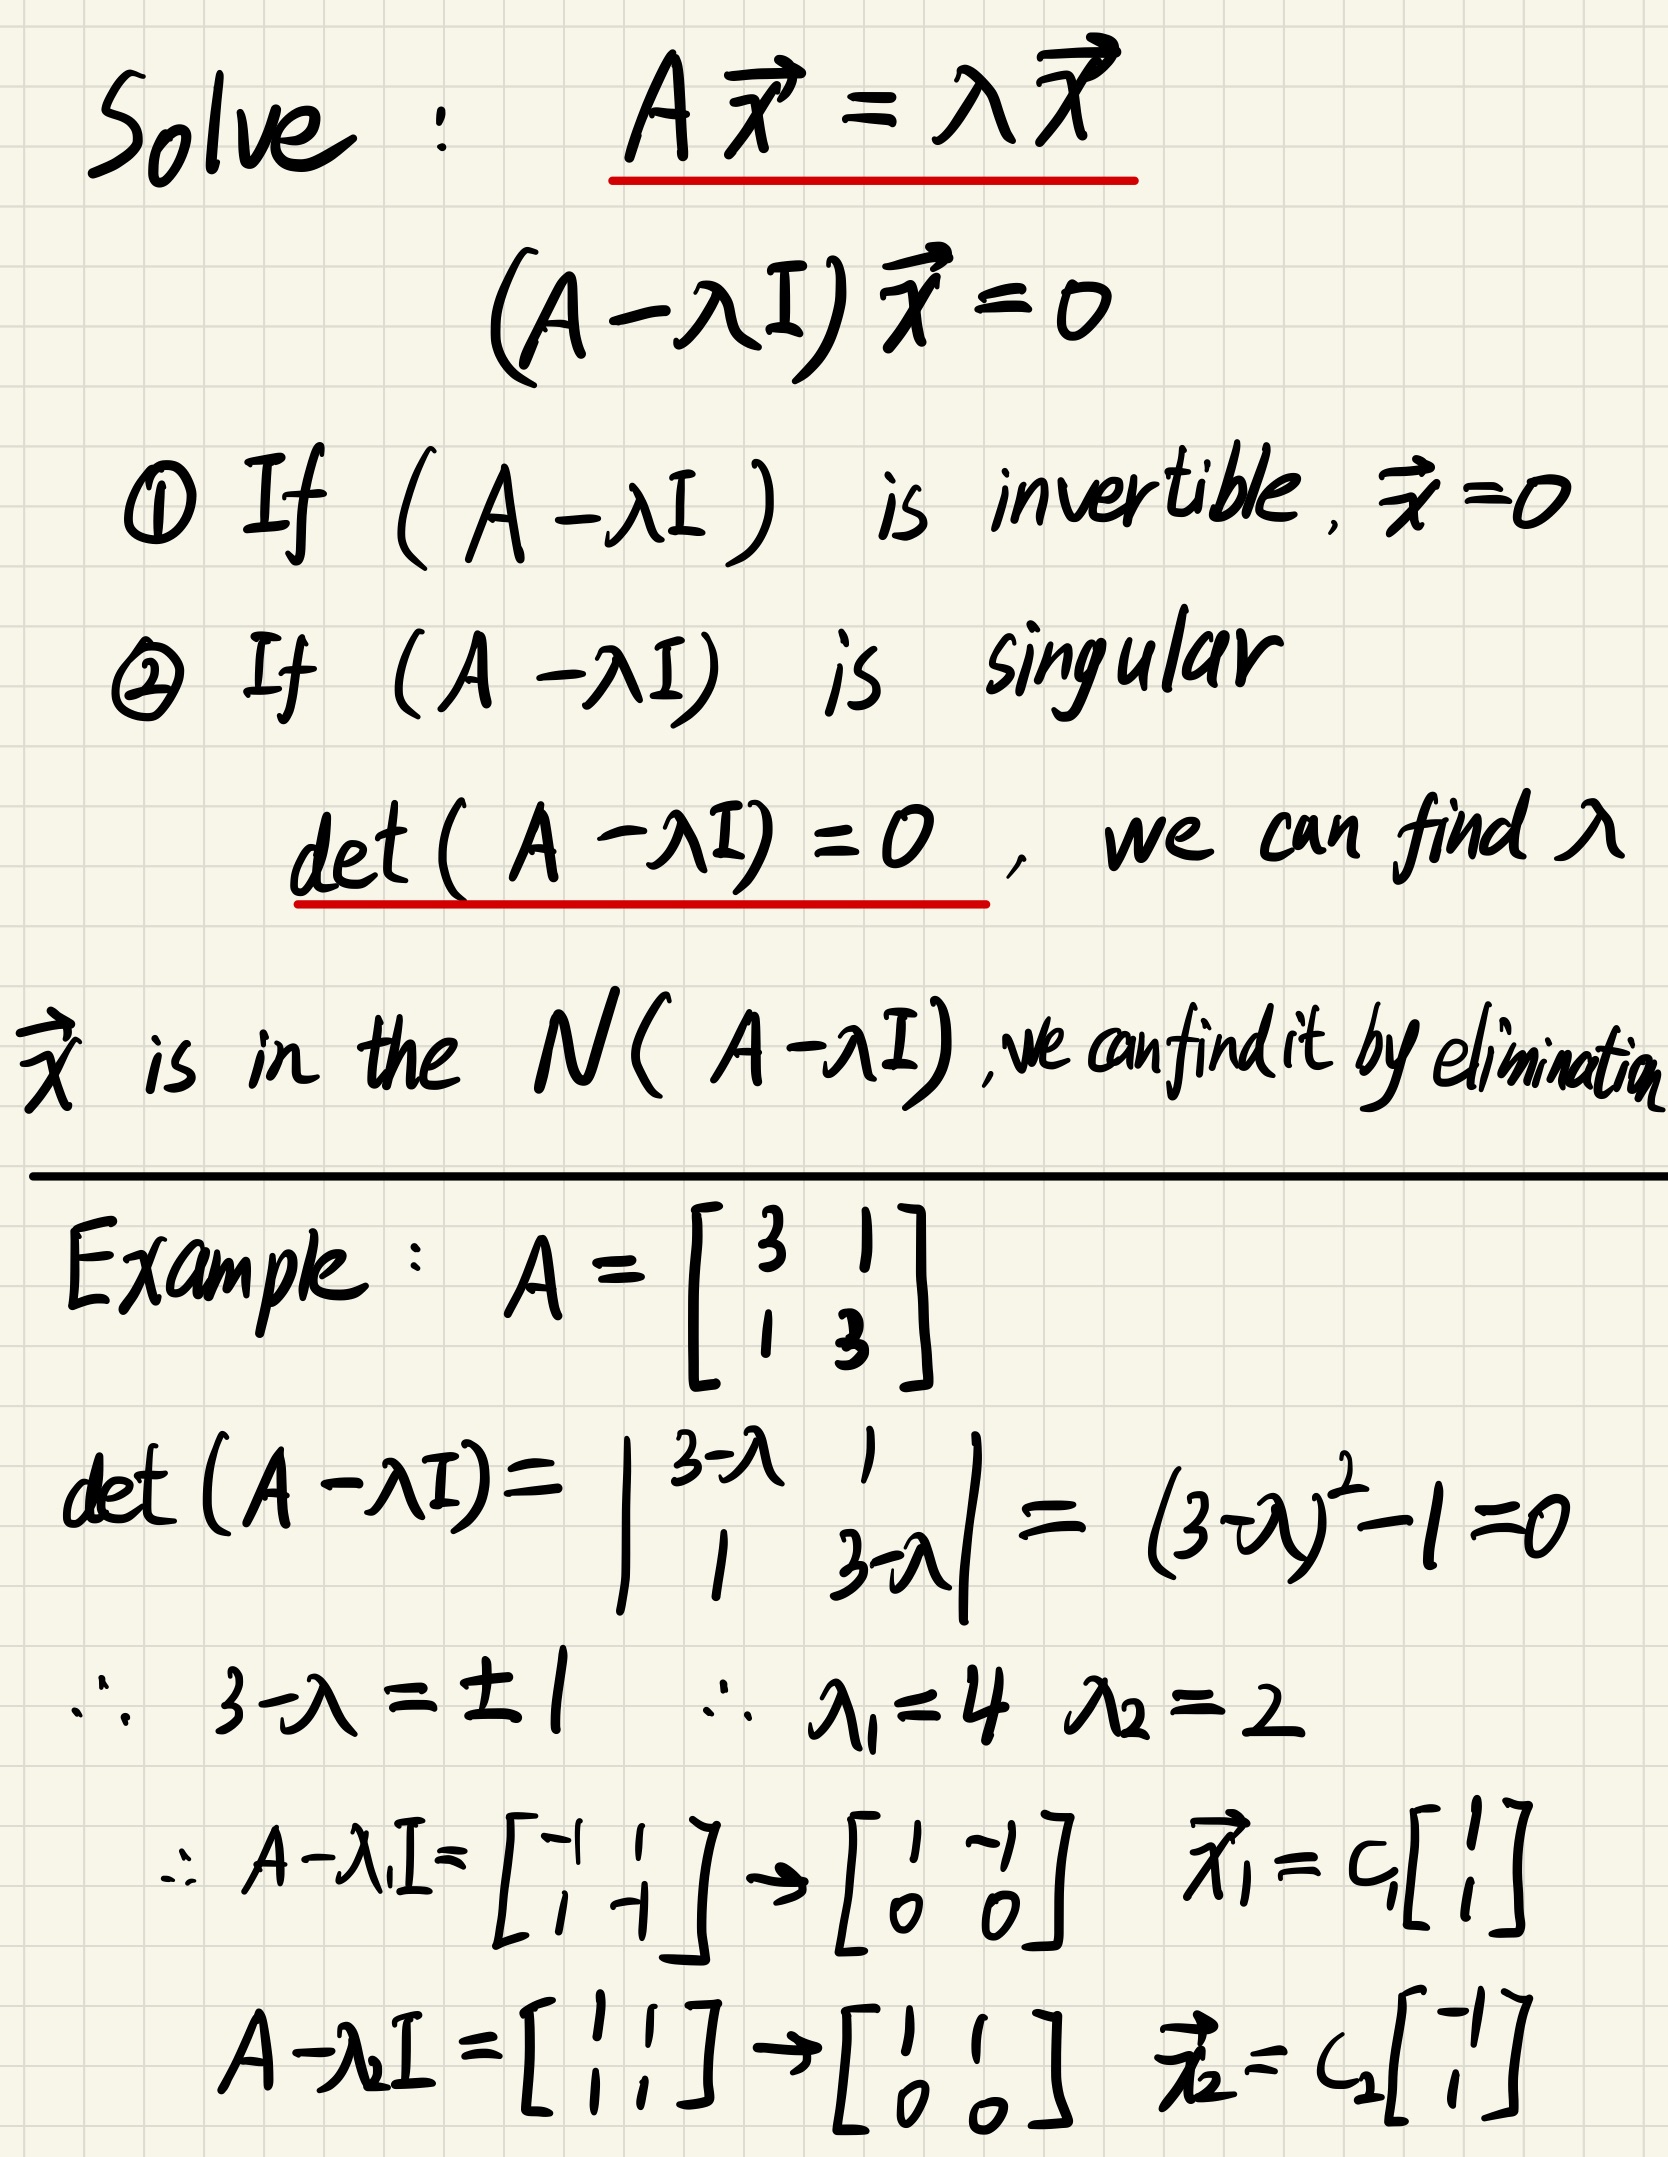 Solve : A x⃗ = λ x⃗
(A − λI) x⃗ = 0
① If (A − λI) is invertible, x⃗ = 0
② If (A − λI) is singular
det( A − λI) = 0 , we can find λ
x⃗ is in the N( A − λI), we can find it by elimination
Example : A = [ 3 1 ; 1 3 ]
det (A − λI) = | 3−λ 1 ; 1 3−λ | = (3−λ)² − 1 = 0
∴ 3−λ = ± 1 ∴ λ₁ = 4 λ₂ = 2
∴ A − λ₁I = [ −1 1 ; 1 −1 ] → [ 1 −1 ; 0 0 ] x⃗₁ = C₁ [ 1 ; 1 ]
A − λ₂I = [ 1 1 ; 1 1 ] → [ 1 1 ; 0 0 ] x⃗₂ = C₂ [ −1 ; 1 ]